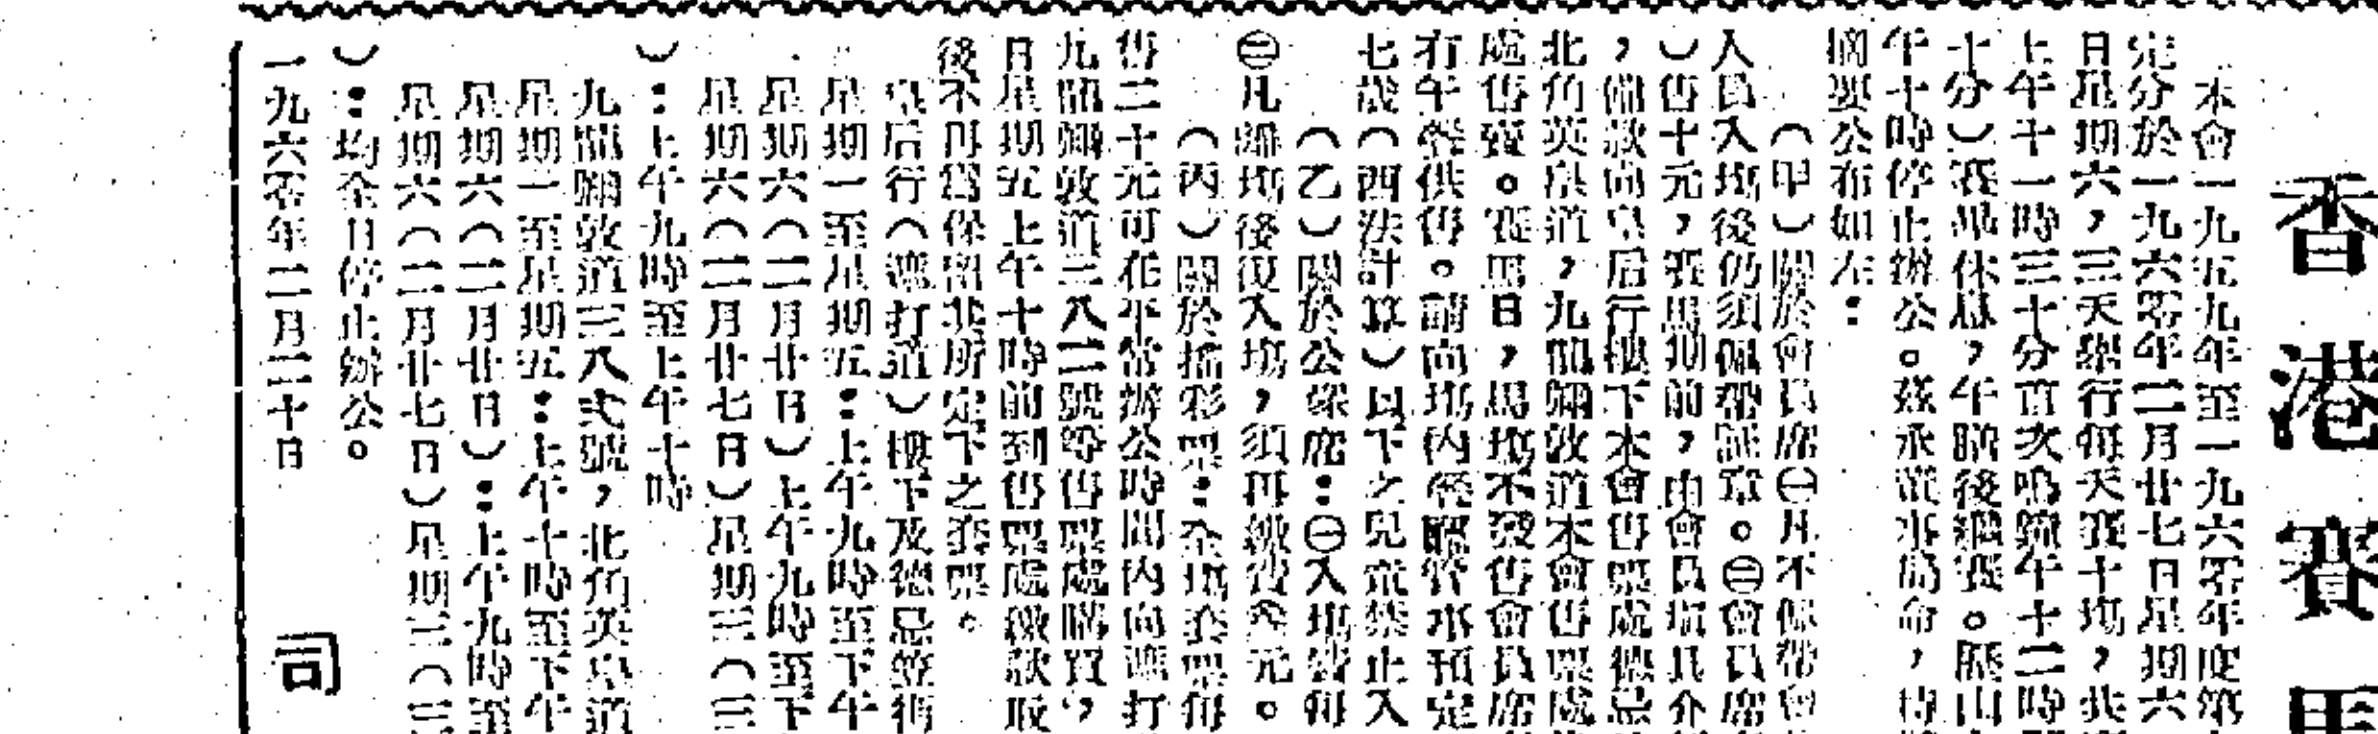 香港賽馬
本會一九五九年至一九六零年度第
定分於一九六零年二月廿七日星期六
日星期六，三天舉行每天賽十場，共
上午十一時三十分首次鳴鐘午十二時
十分）賽畢休息，午膳後繼賽。
午十時停止辦公。茲承董事局命，
摘要公布如左：
（甲）關於會員席㊀凡不佩帶
人員入場後仍須佩帶證章。㊁會員席
）售十元，賽馬期前，由會員
，備款向皇后行樓下本會售票處德忌
北角英皇道，九龍彌敦道本會售票處
處售賣。賽馬日，馬場不發售會員席
有午餐供售。請向場內餐廳管事預定
七歲（西法計算）以下之兒童禁止入
（乙）關於公衆席：㊀入場券每
㊁凡離場後復入場，須再繳費叁元。
（丙）關於搖彩票：全場套票每
售二十元可在平常辦公時間內向遮打
九龍彌敦道三八二號等售票處購買，
日星期五上午十時前到售票處繳款取
後不再爲保留其所定下之套票。
皇后行（遮打道）樓下及德忌笠街
星期一至星期五：上午九時至下午
星期六（二月廿日）上午九時至下
星期六（二月廿七日）星期三（三
）：上午九時至上午十時
九龍彌敦道三八弍號，北角英皇道
星期一至星期五：上午十時至下午
星期六（二月廿日）：上午九時至
星期六（二月廿七日）星期三（三
）：均全日停止辦公。
一九六零年二月二十日　司